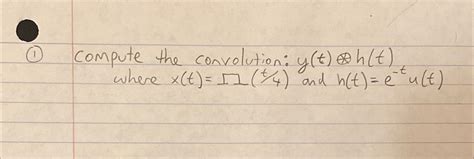 ① compute the convolution: y(t) ⊛ h(t)
where x(t) = Π(t/4) and h(t) = e^-t u(t)